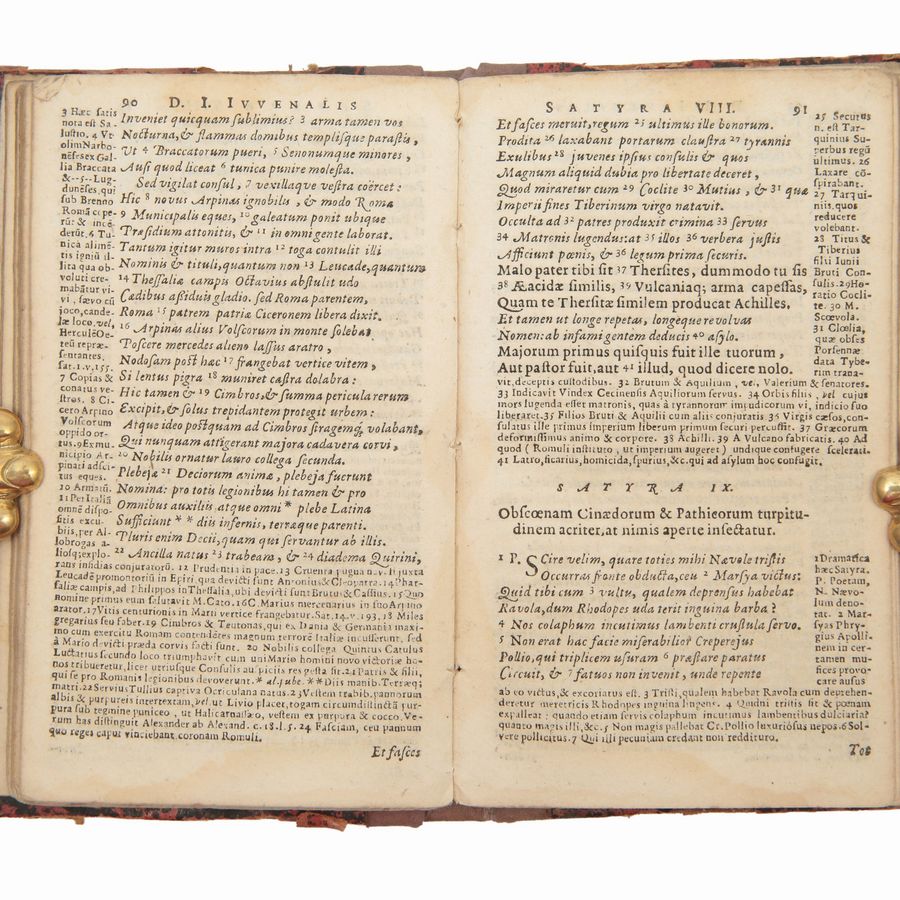 90 D. I. IVVENALIS
Inveniet quicquam sublimius? 3 arma tamen vos
Nocturna, & flammas domibus templisque parastis,
Vt 4 Braccatorum pueri, 5 Senonumque minores,
Ausi quod liceat 6 tunica punire molesta.
Sed vigilat consul, 7 vexillaque vestra coërcet:
Hic 8 novus Arpinas ignobilis, & modo Romæ
9 Municipalis eques, 10 galeatum ponit ubique
Præsidium attonitis, & 11 in omni gente laborat.
Tantum igitur muros intra 12 toga contulit illi
Nominis & tituli, quantum non 13 Leucade, quantum
14 Thessaliæ campis Octavius abstulit udo
Cædibus assiduis gladio. sed Roma parentem,
Roma 15 patrem patriæ Ciceronem libera dixit.
16 Arpinas alius Volscorum in monte solebat
Poscere mercedes alieno lassus aratro,
Nodosam post hæc 17 frangebat vertice vitem,
Si lentus pigra 18 muniret castra dolabra:
Hic tamen & 19 Cimbros, & summa pericula rerum
Excipit, & solus trepidantem protegit urbem:
Atque ideo postquam ad Cimbros stragemq; volabant,
Qui nunquam attigerant majora cadavera corvi,
20 Nobilis ornatur lauro collega secunda.
Plebejæ 21 Deciorum animæ, plebeja fuerunt
Nomina: pro totis legionibus hi tamen & pro
Omnibus auxiliis atque omni * plebe Latina
Sufficiunt ** diis infernis, terræque parenti.
Pluris enim Decii, quam qui servantur ab illis.
22 Ancilla natus 23 trabeam, & 24 diadema Quirini,
3 Hæc satis
nota est Sa-
lustio. 4 Vt
olim Narbo-
nēses ex Gal-
lia Braccata
&--5--Lug-
dunēses, qui
sub Brenno
Romā cepe-
rūt & incē-
derūt. 6 Tu-
nica alimē-
tis igniū il-
lita qua ob-
voluti cre-
mabātur vi-
vi, sævo cū
joco, cande-
læ loco, vel,
Herculē Oe-
teū repræ-
sentantes.
sat. 1. v. 155.
7 Copias &
conatus ve-
stros. 8 Ci-
cero Arpino
Volscorum
oppido or-
tus. 9 Ex mu-
nicipio Ar-
pinati adsci-
tus eques.
10 Armatū.
11 Per Italiā
omnē dispo-
sitis excu-
biis, per Al-
lobrogas a-
liosq; explo-
rans insidias conjuratorū. 12 Prudentia in pace. 13 Cruenta pugna nav. li juxta
Leucadē promontoriū in Epiri, qua devicti sunt Antonius & Cleopatra. 14 Phar-
saliæ campis, ad Philippos in Thessalia, ubi devicti sunt Brutus & Cassius. 15 Quo
nomine primus eum salutavit M. Cato. 16 C. Marius mercenarius in suo Arpino
arator. 17 Vitis centurionis in Marti vertice frangebatur. Sat. 14. v. 193. 18 Miles
gregarius seu faber. 19 Cimbros & Teutonas, qui ex Dania & Germania maxi-
mo cum exercitu Romam contendētes magnum terrorē Italiæ incusserunt, sed
à Mario devicti præda corvis facti sunt. 20 Nobilis collega Quintus Catulus
Luctatius secundo loco triumphavit cum uni Mario homini novo victoriæ ho-
nos tribueretur, licet utriusque Consulis auspiciis res gesta sit. 21 Patris & filii,
qui se pro Romanis legionibus devoverunt. * al. jube. ** Diis manib. Terræq;
matri. 22 Servius Tullius captiva Ocriculana natus. 23 Vestem trabib. pannorum
albis & purpureis intertextam, vel ut Livio placet, togam circumdistinctā pur-
pura sub regmine puniceo, ut Halicarnassæo, vestem ex purpura & cocco. Ve-
rum has distinguit Alexander ab Alexand. c. 18. l. 5. 24 Fasciam, ceu pannum
quo reges caput vinciebant, coronam Romuli.
Et fasces
SATYRA VIII. 91
Et fasces meruit, regum 25 ultimus ille bonorum.
Prodita 26 laxabant portarum claustra 27 tyrannis
Exulibus 28 juvenes ipsius consulis & quos
Magnum aliquid dubia pro libertate deceret,
Quod miraretur cum 29 Coclite 30 Mutius, & 31 quæ
Imperii fines Tiberinum virgo natavit.
Occulta ad 32 patres produxit crimina 33 servus
34 Matronis lugendus: at 35 illos 36 verbera justis
Afficiunt pœnis, & 36 legum prima securis.
Malo pater tibi sit 37 Thersites, dummodo tu sis
38 Æacidæ similis, 39 Vulcaniaq; arma capessas,
Quam te Thersitæ similem producat Achilles.
Et tamen ut longe repetas, longeque revolvas
Nomen: ab infami gentem deducis 40 asylo.
Majorum primus quisquis fuit ille tuorum,
Aut pastor fuit, aut 41 illud, quod dicere nolo.
25 Secutus
n. est Tar-
quinius Su-
perbus regū
ultimus. 26
Laxare cō-
spirabant.
27 Tarqui-
niis, quos
reducere
volebant.
28 Titus &
Tiberius
filii Iunii
Bruti Con-
sulis. 29 Ho-
ratio Cocli-
te. 30 M.
Scævola.
31 Clœlia,
quæ obses
Porsennæ
data Tybe-
rim trana-
vit, deceptis custodibus. 32 Brutum & Aquilium, vel, Valerium & senatores.
33 Indicavit Vindex Cecinensis Aquiliorum servus. 34 Orbis filiis, vel cujus
mors lugenda esset matronis, quas à tyrannorum impudicorum vi, indicio suo
liberaret. 35 Filios Bruti & Aquilii cum aliis conjuratis. 36 Virgis cæsos, con-
sulatus ille primus imperium liberum primum securi percussit. 37 Græcorum
deformissimus animo & corpore. 38 Achilli. 39 A Vulcano fabricatis. 40 Ad
quod (Romuli instituto, ut imperium augeret) undique confugere scelerati.
41 Latro, sicarius, homicida, spurius, &c. qui ad asylum hoc confugit.
SATYRA IX.
Obscœnam Cinædorum & Pathicorum turpitu-
dinem acriter, at nimis aperte insectatur.
1 P. SCire velim, quare toties mihi Nævole tristis
Occurras fronte obducta, ceu 2 Marsya victus:
Quid tibi cum 3 vultu, qualem deprensus habebat
Ravola, dum Rhodopes uda terit inguina barba?
4 Nos colaphum incutimus lambenti crustula servo.
5 Non erat hac facie miserabilior Creperejus
Pollio, qui triplicem usuram 6 præstare paratus
Circuit, & 7 fatuos non invenit, unde repente
1 Dramatica
hæc Satyra.
P. Poetam,
N. Nævo-
lum deno-
tat. 2 Mar-
syas Phry-
gius Apolli-
nem in cer-
tamen mu-
sices provo-
care ausus
ab eo victus, & excoriatus est. 3 Tristi, qualem habebat Ravola cum deprehen-
deretur meretricis Rhodopes inguina lingens. 4 Quidni tristis sit & pœnam
expalleat: quando etiam servis colaphum incutimus lambentibus dulciaria?
quanto magis illi, &c. 5 Non magis pallebat Cr. Pollio luxuriosus nepos. 6 Sol-
vere pollicitus. 7 Qui illi pecuniam credant non reddituro.
Tot